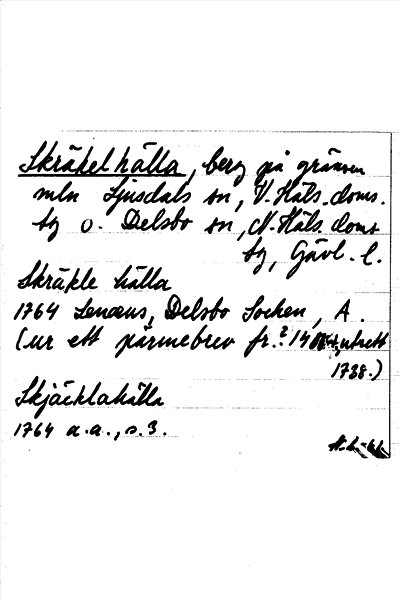 Skräkelhälla, berg på gränsen
mln Ljusdals sn, V. Häls. doms.
by o. Delsbo sn, N. Häls. doms
by, Gävl. l.
Skräkle hälla
1764 Lenæus, Delsbo Socken, A.
(ur ett pärmebrev fr. utsatt
1738.)
Skjäcklahälla
1764 a.a., s. 3.